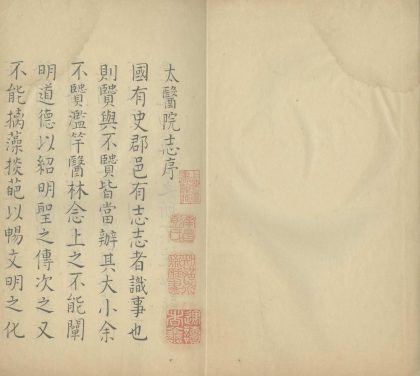 太醫院志序
國有史郡邑有志志者識事也
則贒與不贒皆當辦其大小余
不贒濫竽醫林念上之不能闡
明道德以紹明聖之傳次之又
不能摛藻掞葩以暢文明之化